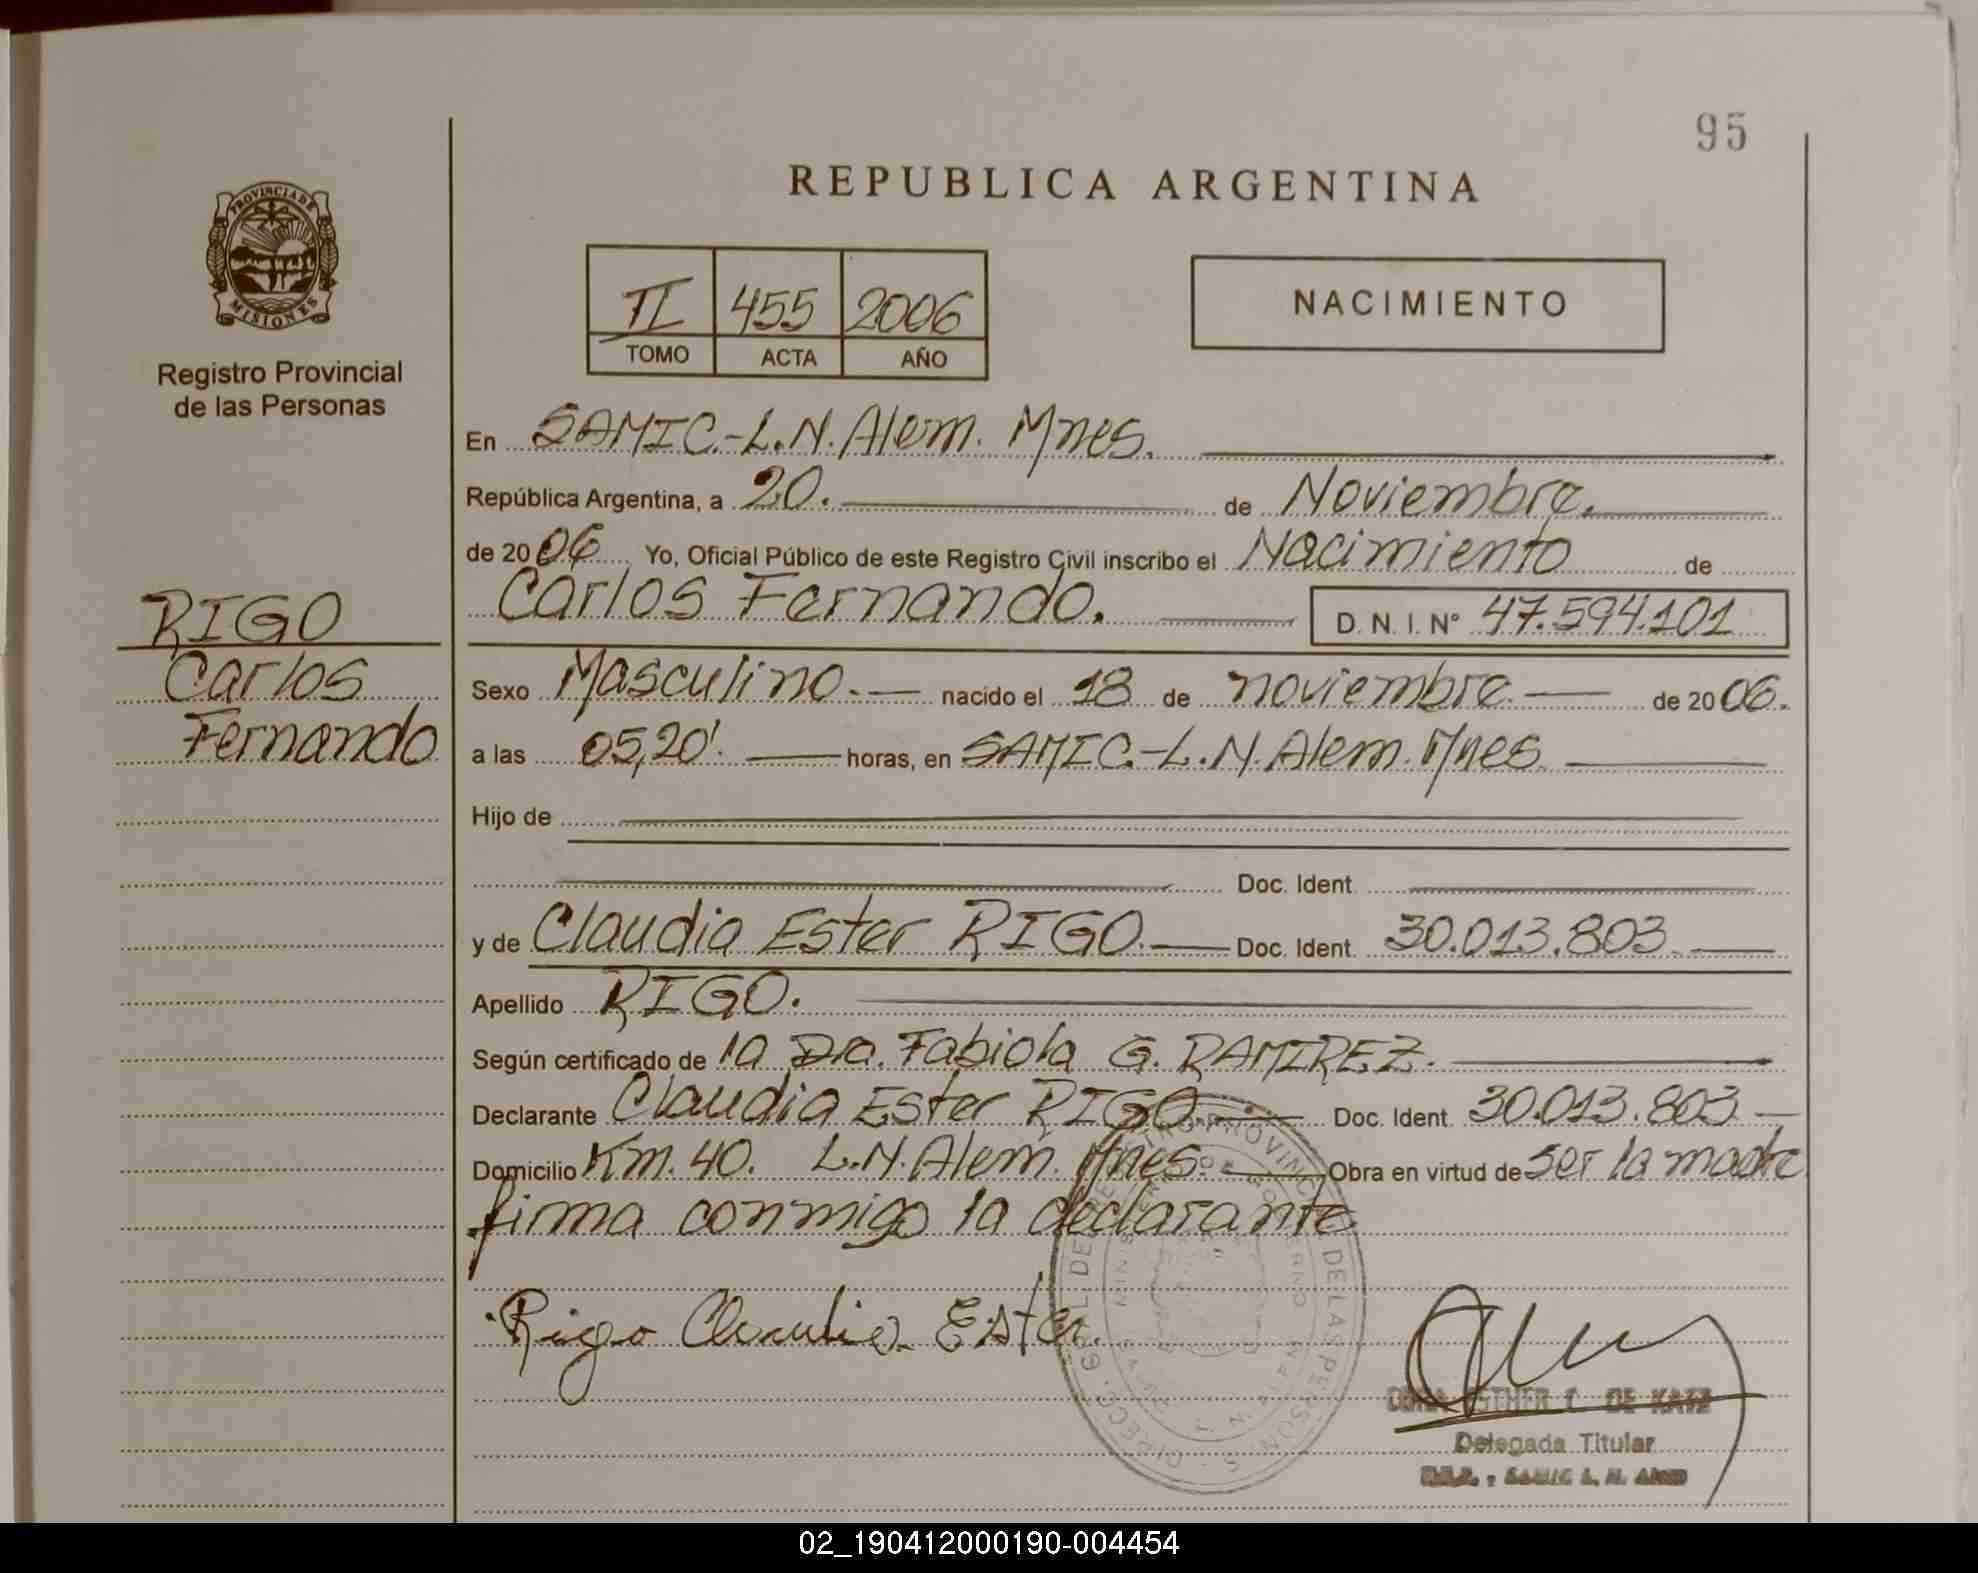 95
REPUBLICA ARGENTINA
PROVINCIA DE
MISIONES
Registro Provincial
de las Personas
II 455 2006
TOMO ACTA AÑO
NACIMIENTO
En SAMIC.-L.N. Alem. Mnes.
República Argentina, a 20. de Noviembre.
de 2006 Yo, Oficial Público de este Registro Civil inscribo el Nacimiento de
Carlos Fernando. D.N.I. Nº 47.594.101
RIGO
Carlos
Fernando
Sexo Masculino.- nacido el 18 de noviembre de 2006.
a las 05,20'. horas, en SAMIC.-L.N. Alem. Mnes
Hijo de
Doc. Ident.
y de Claudia Ester RIGO. Doc. Ident. 30.013.803
Apellido RIGO.
Según certificado de la Dra. Fabiola G. RAMIREZ.
Declarante Claudia Ester RIGO Doc. Ident. 30.013.803
Domicilio Km. 40. L.N. Alem. Mnes. Obra en virtud de ser la madre
firma conmigo la declarante
Rigo Claudia Ester.
ESTHER DE KATZ
Delegada Titular
SAMIC L. N. Alem
02_190412000190-004454